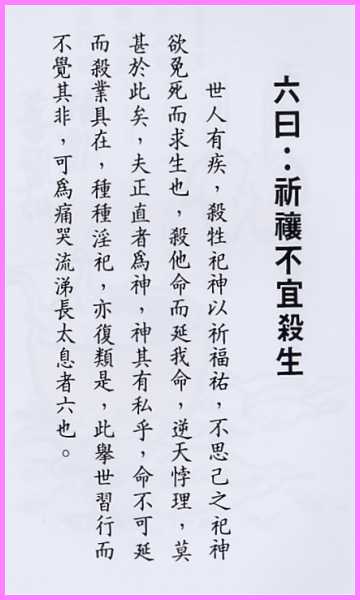 六曰：祈禳不宜殺生
世人有疾，殺牲祀神以祈福祐，不思己之祀神
欲免死而求生也，殺他命而延我命，逆天悖理，莫
甚於此矣，夫正直者為神，神其有私乎，命不可延
而殺業具在，種種淫祀，亦復類是，此舉世習行而
不覺其非，可為痛哭流涕長太息者六也。